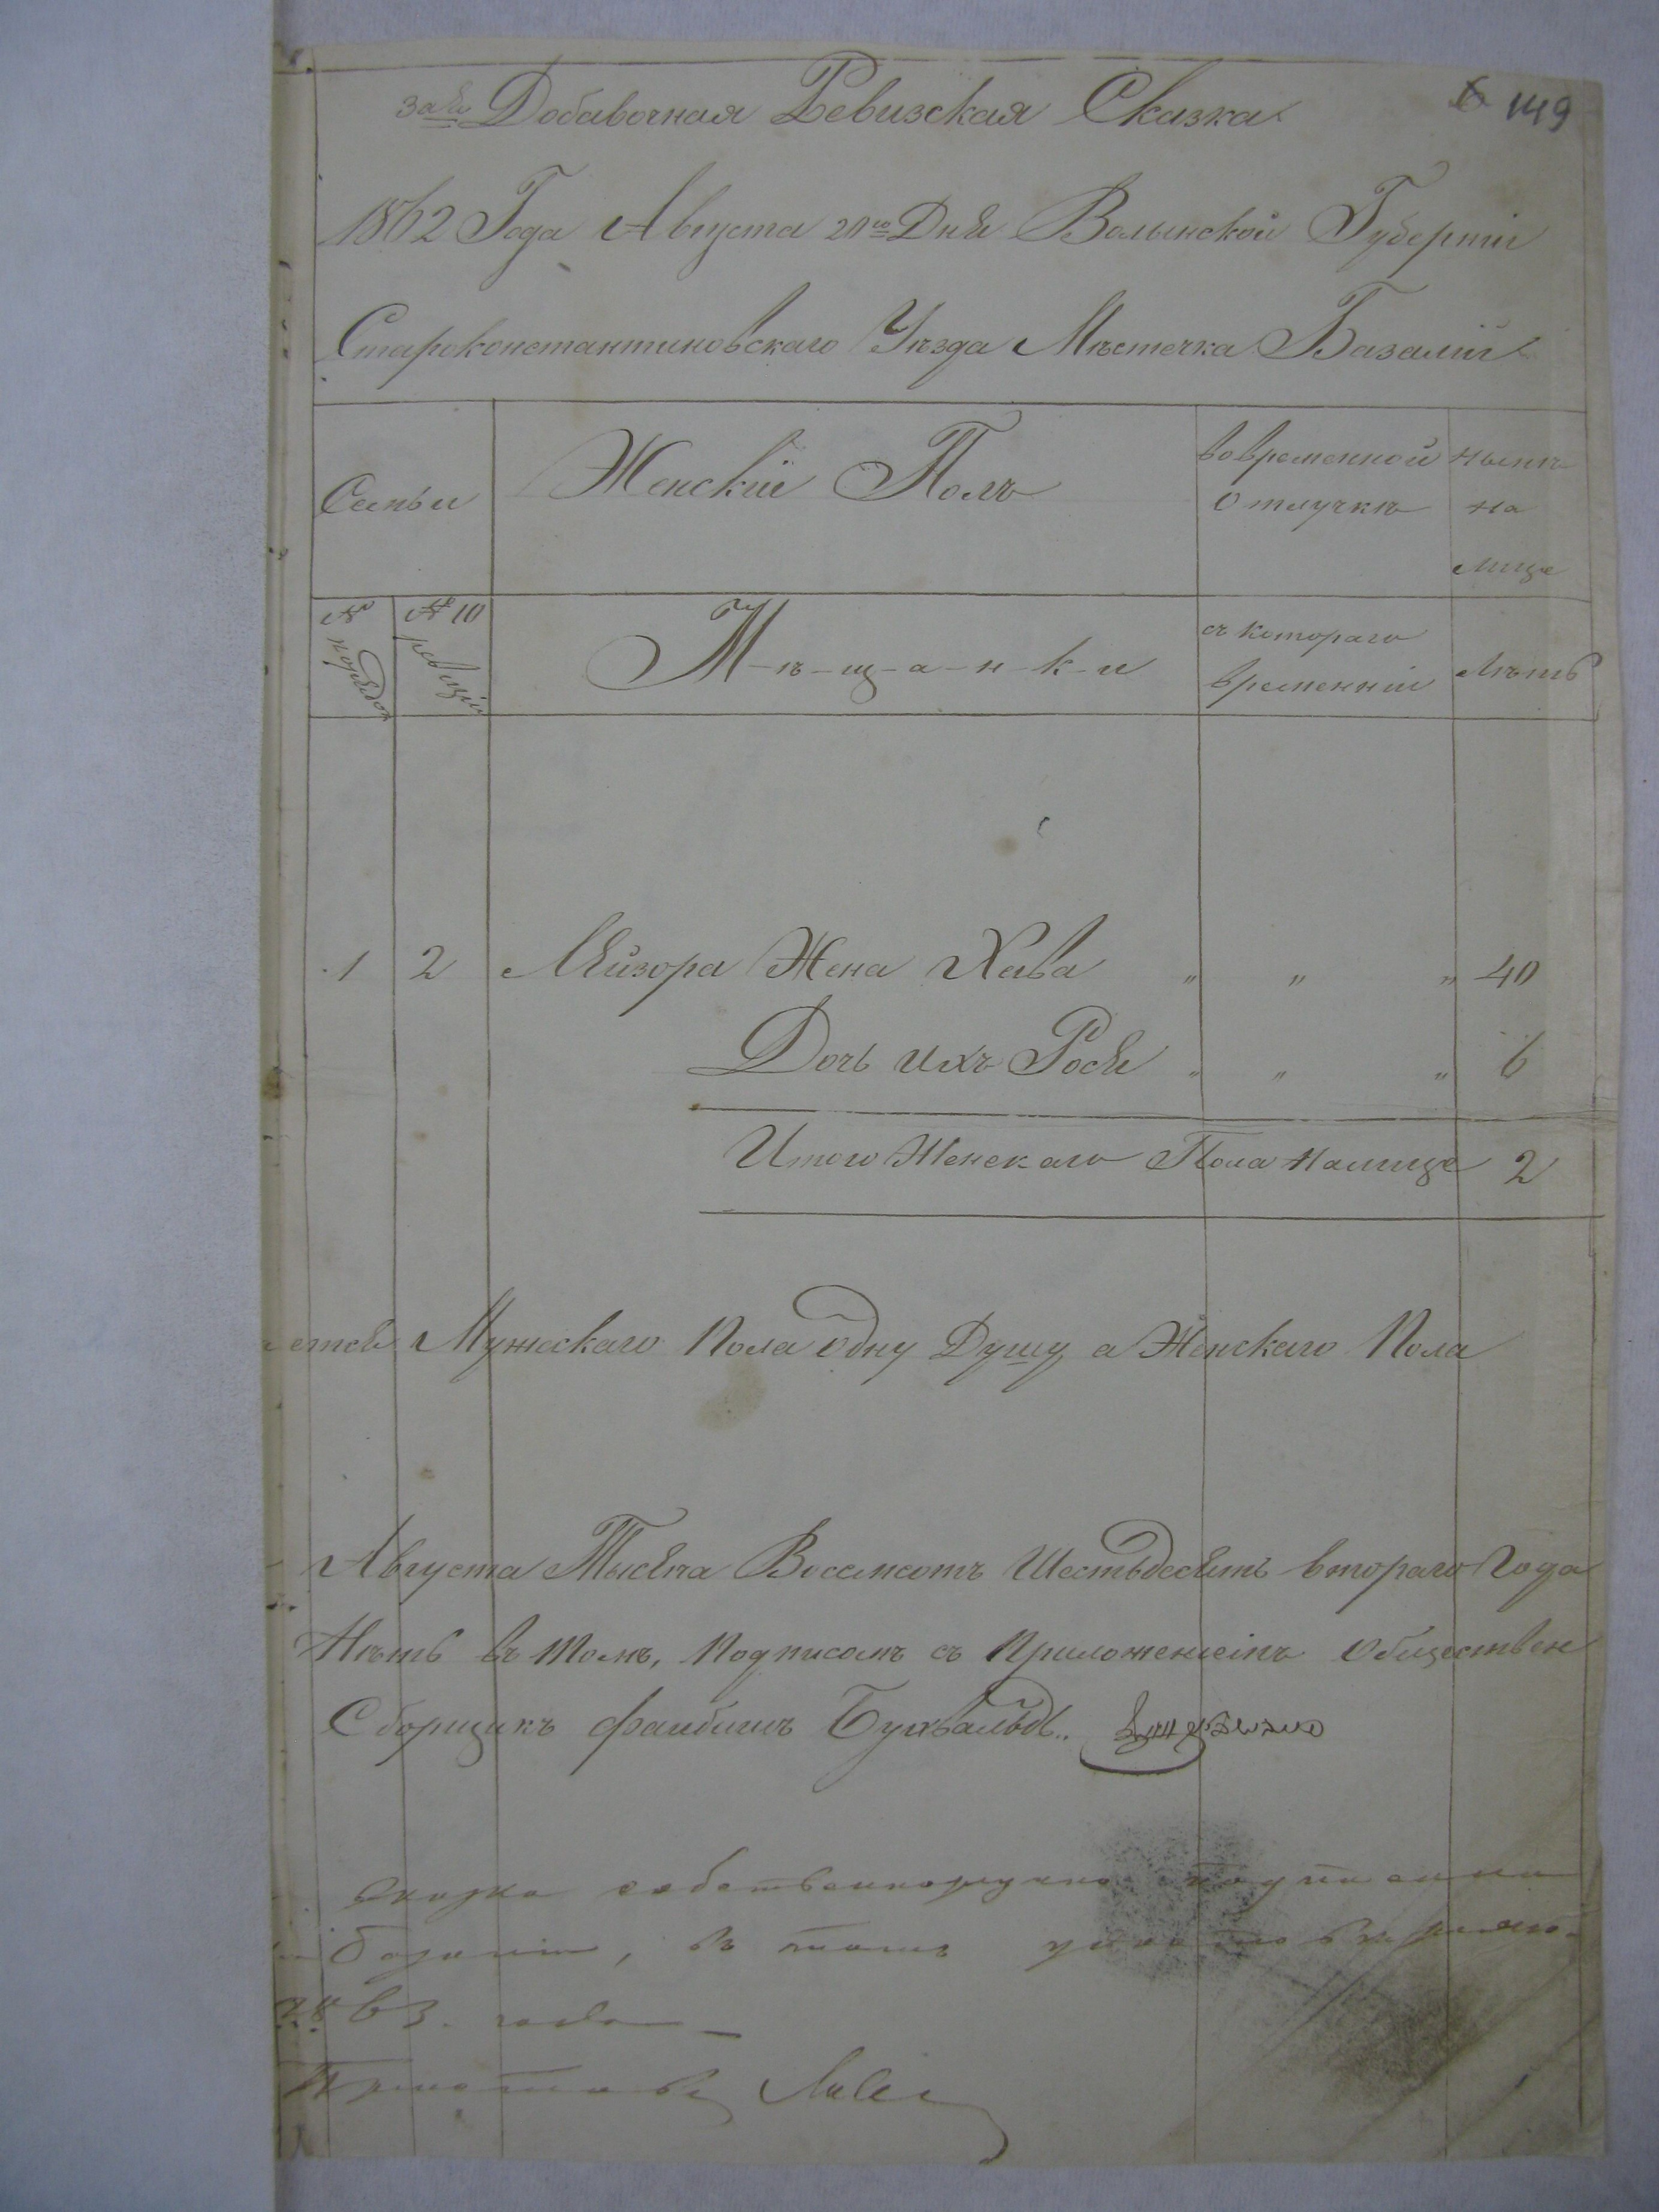 Добавочная Ревизская Сказка
149
1862 Года Августа 20го Дня Волынской Губернiи
Староконстантиновскаго Уѣзда Мѣстечка Базалiи
Семьи
Женскiй Полъ
во временной отлучкѣ
нынѣ на лице
№ порядок
№ 10 ревизiи
М-ѣ-щ-а-н-к-и
съ котораго временнiи
Лѣтъ
1 2 Лейзора Жена Хава " " " 40
Дочь ихъ Рося " " " 6
Итого Женскаго Пола налице 2
Мужескаго Пола одну Душу а Женскаго Пола
Августа Тысяча Восемсотъ Шестьдесятъ втораго Года
Нѣтъ въ томъ, Подписомъ съ Приложенiемъ Обществен
Сборщикъ Файбишъ Бухвальдъ..
Сказка собственноручно подписана
Базалiи, въ томъ удостовѣряю.
63. года
Приставъ